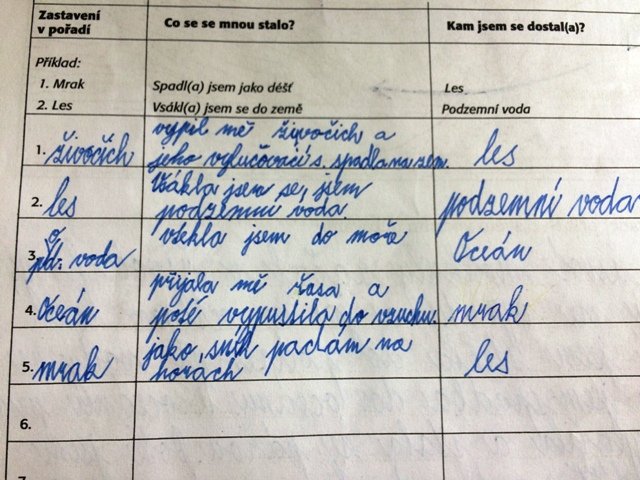 Zastavení v pořadí
Co se se mnou stalo?
Kam jsem se dostal(a)?
Příklad:
1. Mrak
Spadl(a) jsem jako déšť
Les
2. Les
Vsákl(a) jsem se do země
Podzemní voda
1. živočich
vypil mě živočich a
jeho vylučovací s. spadla na zem.
les
2. les
Vsákla jsem se, jsem
podzemní voda
podzemní voda
3. pd. voda
vtekla jsem do moře
Oceán
4. Oceán
přijala mě řasa a
poté vypustila do vzuchu.
mrak
5. mrak
jako sníh padám na
horách
les
6.